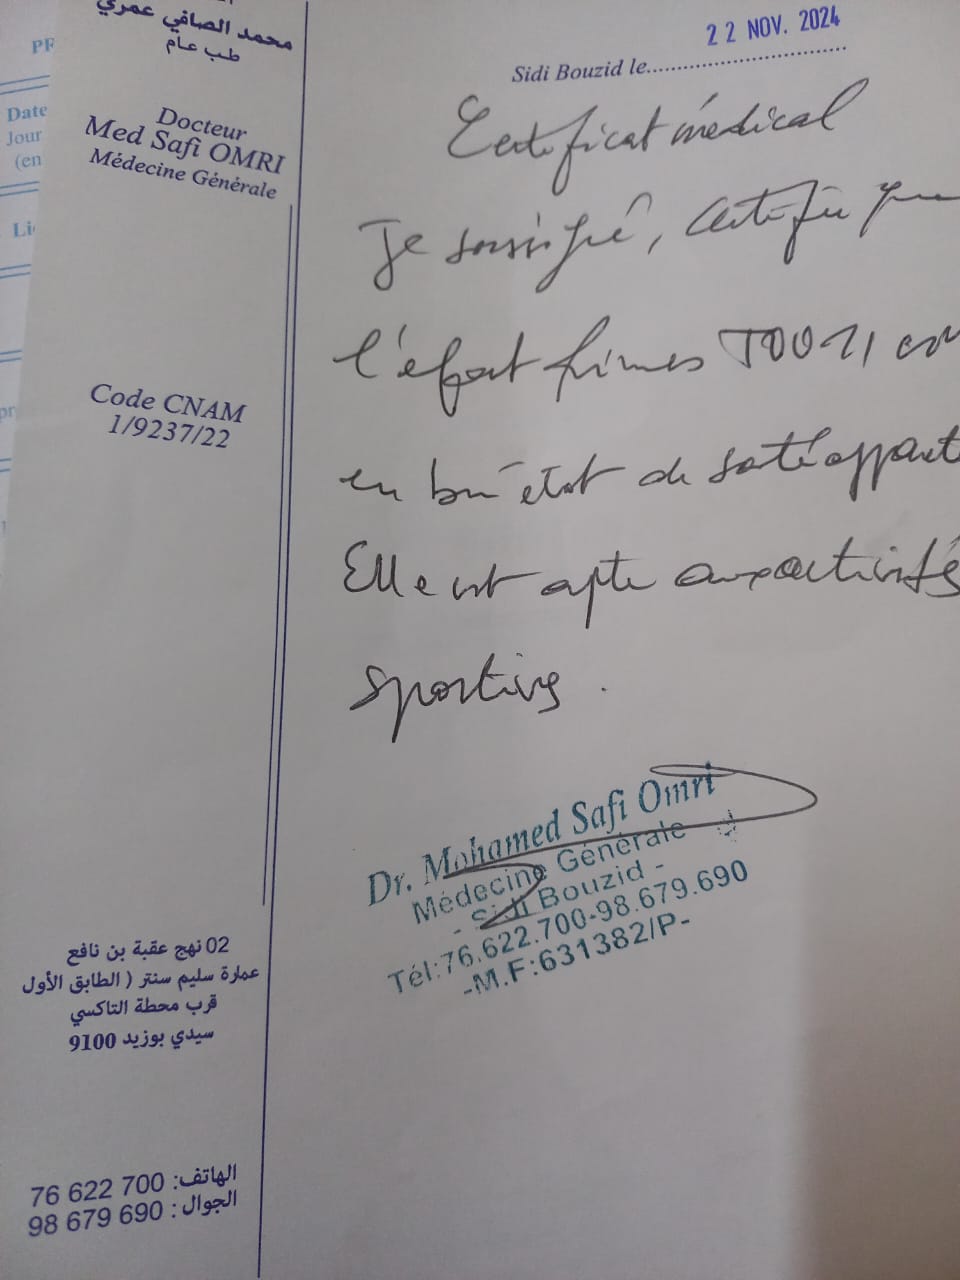 محمد الصافي عمري
طب عام
Docteur
Med Safi OMRI
Médecine Générale
Code CNAM
1/9237/22
22 NOV. 2024
Sidi Bouzid le
Certificat médical
Je soussigné, certifie que
l'efant
en bn état de saté appart
Elle est apte aux activités
sportives.
Dr. Mohamed Safi Omri
Médecine Générale
- Sidi Bouzid -
Tél:76.622.700-98.679.690
-M.F:631382/P-
02 نهج عقبة بن نافع
عمارة سليم سنتر ( الطابق الأول
قرب محطة التاكسي
سيدي بوزيد 9100
الهاتف: 76 622 700
الجوال : 98 679 690
Date
Jour
(en